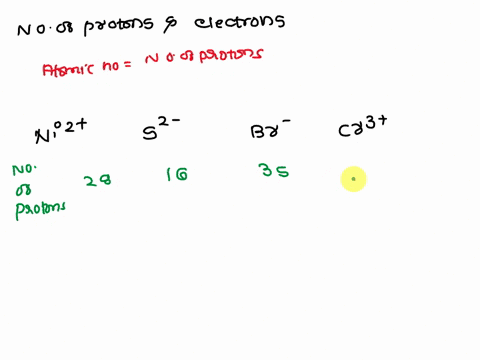 No. of protons & electrons
Atomic no = No of protons
Ni²⁺ S²⁻ Br⁻ Cr³⁺
No. of protons 28 16 35